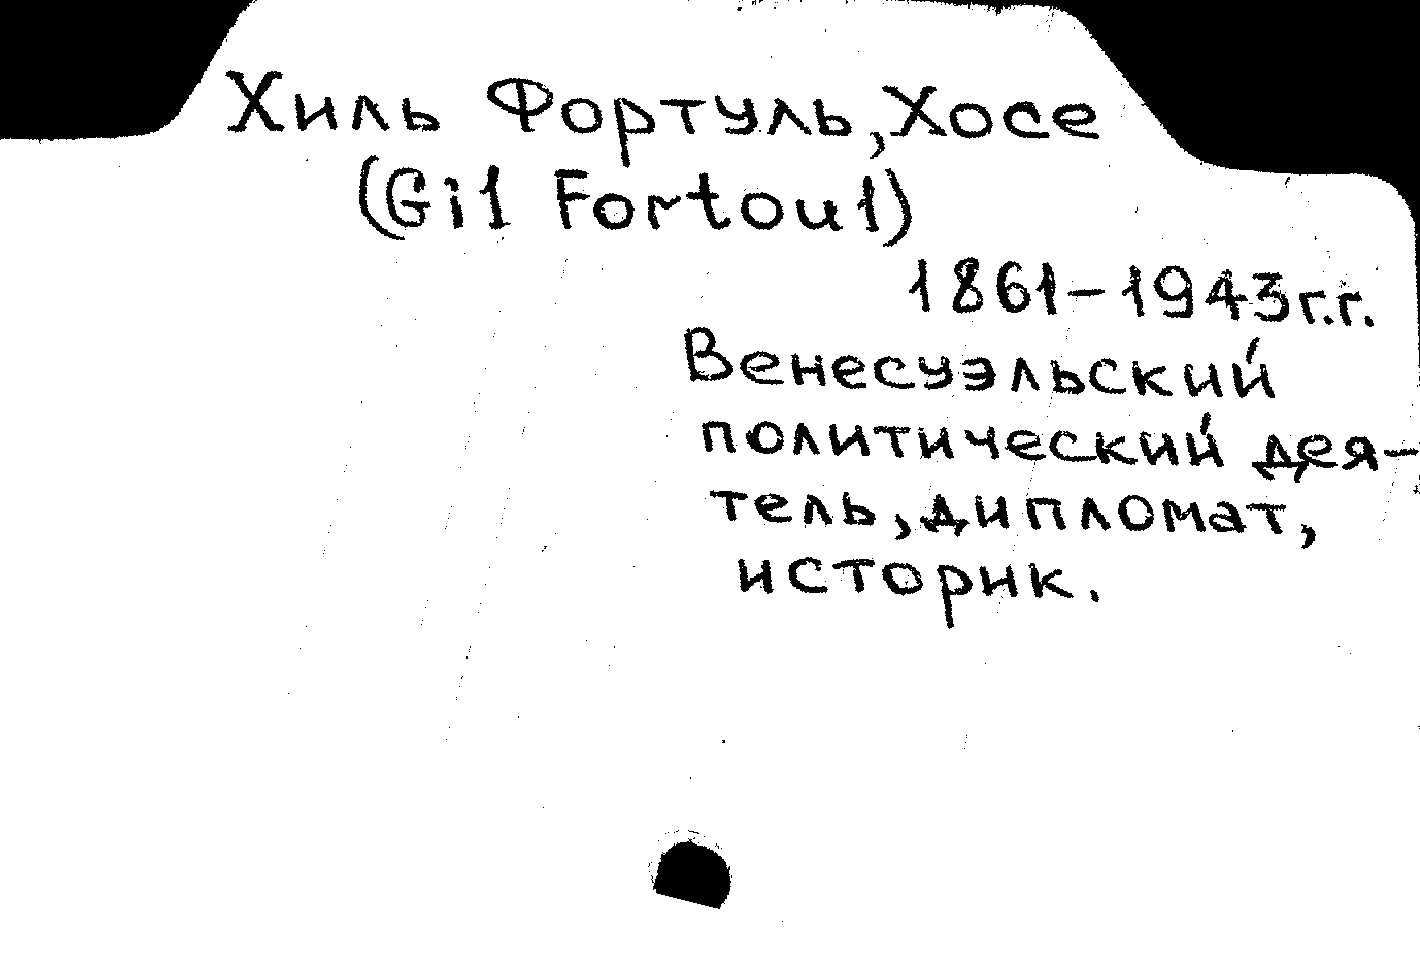 Хиль Фортуль, Хосе
(Gil Fortoul)
1861-1943г.г.
Венесуэльский
политический дея-
тель, дипломат,
историк.